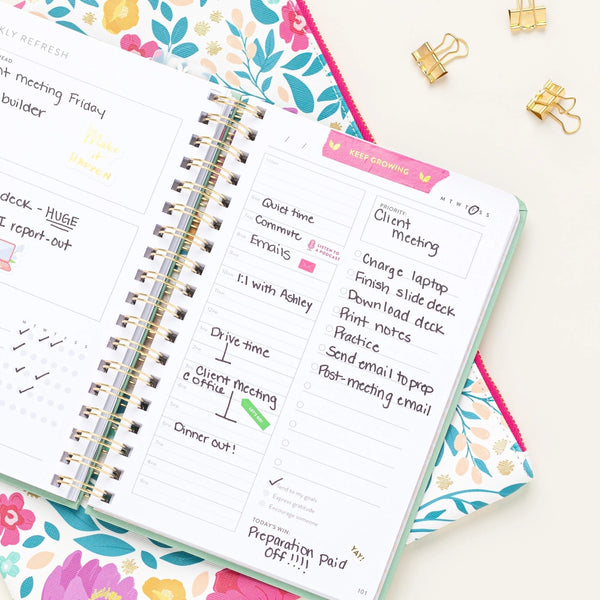 KLY REFRESH
EAD
ent meeting Friday
builder
Make it
Happen
deck - HUGE
I report-out
M T W T F S S
KEEP GROWING
M T W T F S S
Quiet time
Commute
Emails
LISTEN TO
A PODCAST
1:1 with Ashley
Drive time
Client meeting
@ office
Dinner out!
PRIORITY:
Client
meeting
Charge laptop
Finish slide deck
Download deck
Print notes
Practice
Send email to prep
Post-meeting email
Tend to my goals
Express gratitude
Encourage someone
TODAY'S WIN:
Preparation Paid
Off!!!!
YAY!
101